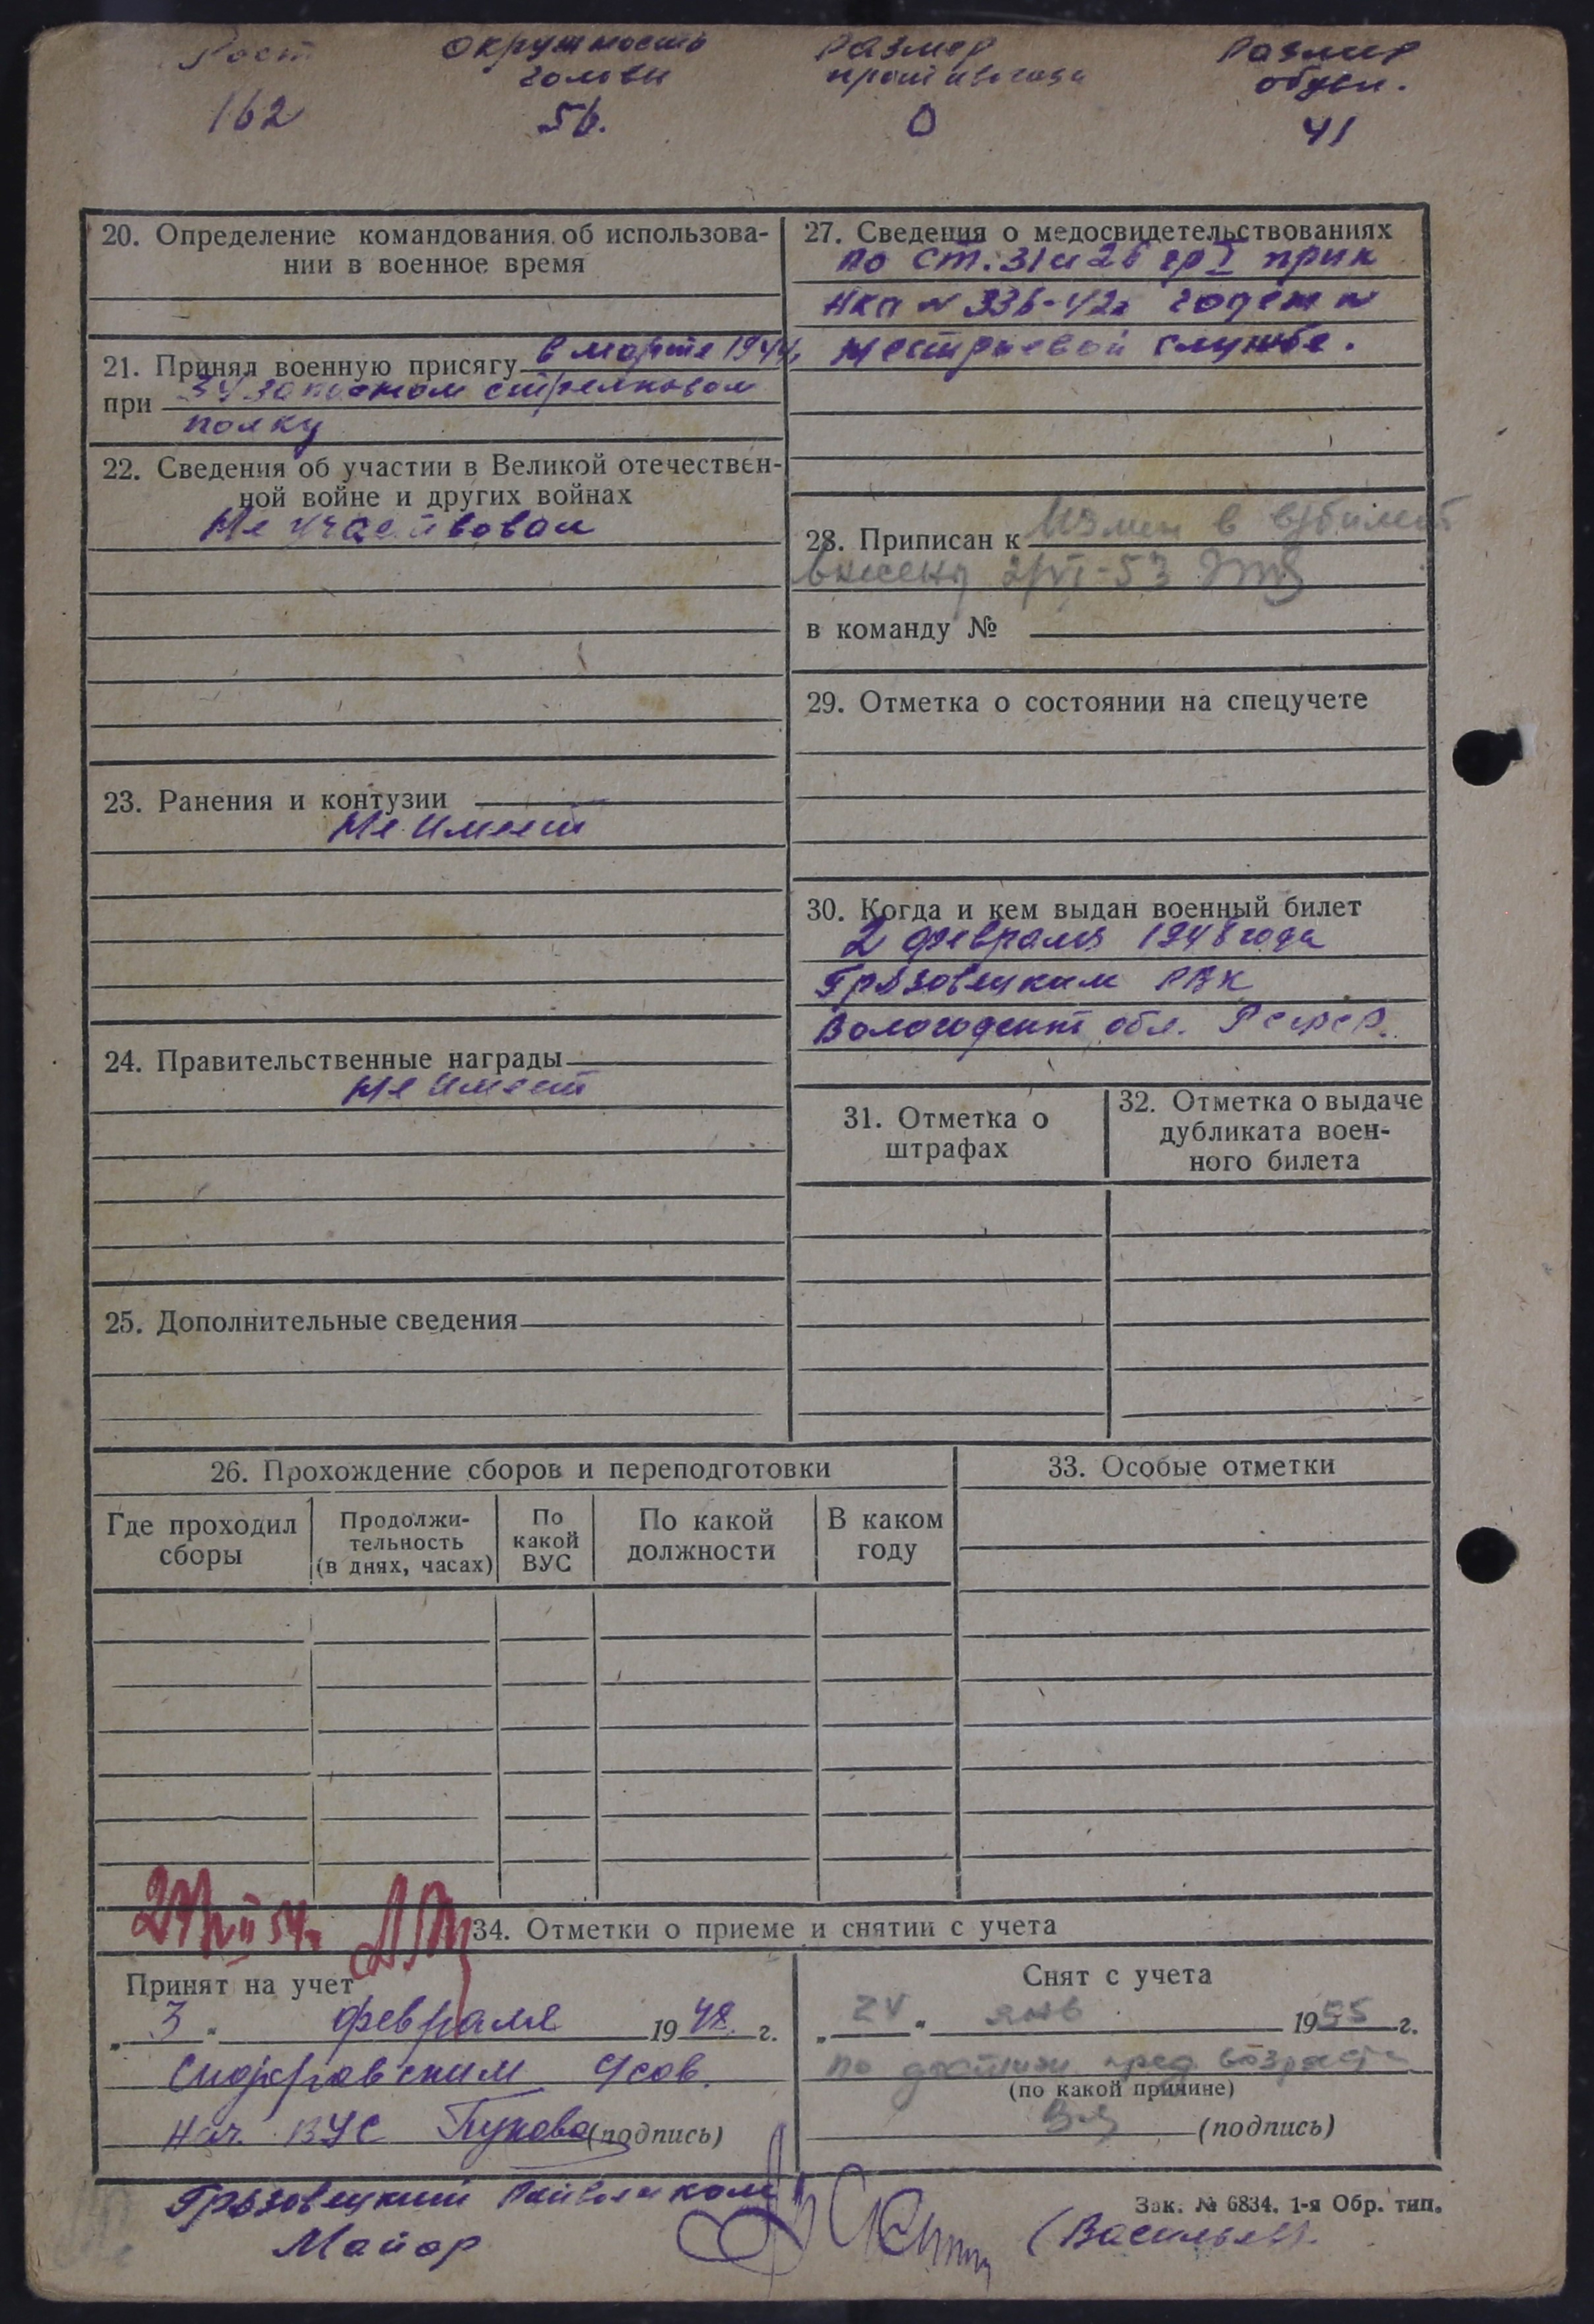 Рост Окружность Размер Размер
головы противогаза обуви.
162 56. 0 41
20. Определение командования об использова-
нии в военное время
21. Принял военную присягу в марте 1944г
при 34 запасном стрелковом
полку
22. Сведения об участии в Великой отечествен-
ной войне и других войнах
Не участвовал
23. Ранения и контузии
Не имеет
24. Правительственные награды
Не имеет
25. Дополнительные сведения
27. Сведения о медосвидетельствованиях
по ст. 31 и 26 гр I прик
НКО № 336-42г годен к
нестроевой службе.
28. Приписан к Измен в в/билет
внесены 2/VI-53
в команду №
29. Отметка о состоянии на спецучете
30. Когда и кем выдан военный билет
2 февраля 1948 года
Грязовецким РВК
Вологодский обл. РСФСР.
31. Отметка о
штрафах
32. Отметка о выдаче
дубликата воен-
ного билета
26. Прохождение сборов и переподготовки
Где проходил
сборы
Продолжи-
тельность
(в днях, часах)
По
какой
ВУС
По какой
должности
В каком
году
33. Особые отметки
34. Отметки о приеме и снятии с учета
Принят на учет
„ 3 " февраля 1948. г.
Сидоровским Усов.
Нач. ВУС (подпись)
Снят с учета
„ " янв 1955 г.
по достиж пред возраста
(по какой причине)
(подпись)
Грязовецкий Райвоенком
Майор (Васильев).
Зак. № 6834. 1-я Обр. тип.